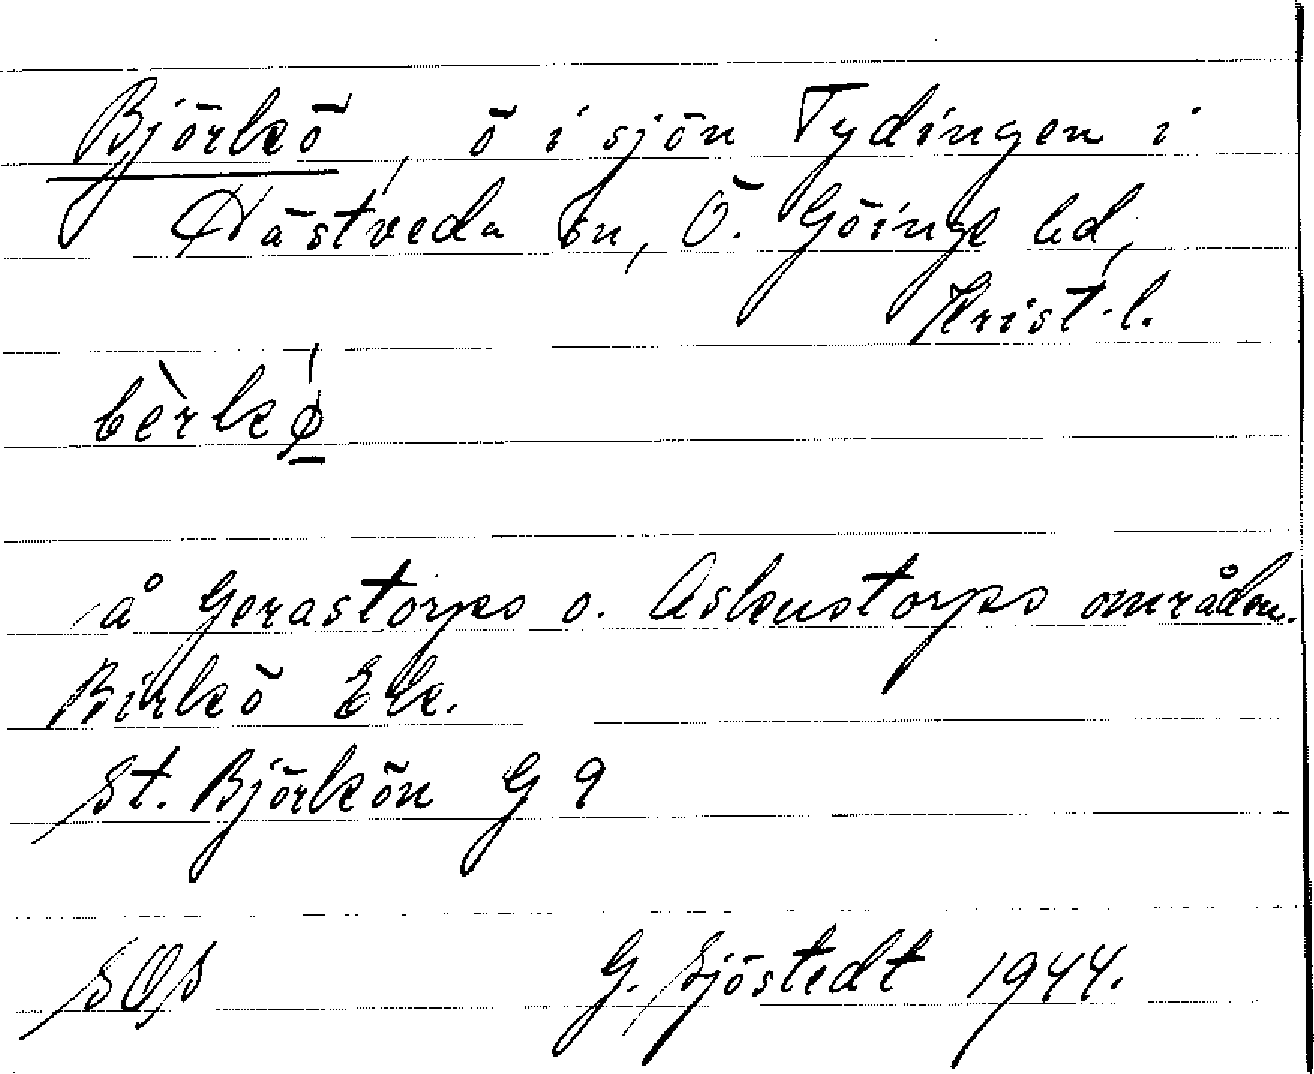 Björkö, ö i sjön Tydingen i
Nästveda sn, Ö. Göinge hd,
Krist.l.
bèrkǿ̱
å Gerastorps o. Askustorps områden.
Birkö Ek.
St. Björkön G 9
SOS G. Sjöstedt 1944.